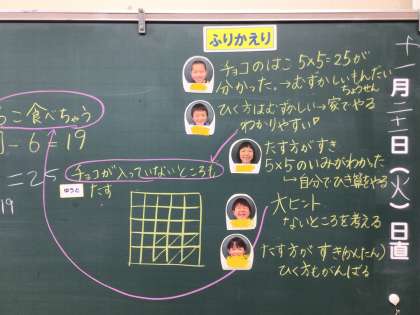 ふりかえり
チョコのはこ 5×5=25が
分かった。→むずかしいもんだい
ちょうせん
ひく方はむずかしい→家でやる
わかりやすい
たす方がすき
5×5のいみがわかった
→自分でひき算をやる
大ヒント
ないところを考える
たす方がすき(かんたん)
ひく方もがんばる
こ食べちゃう
-6=19
=25
19
チョコが入っていないところも
ゆうと
たす
十一月二十一日(火)日直